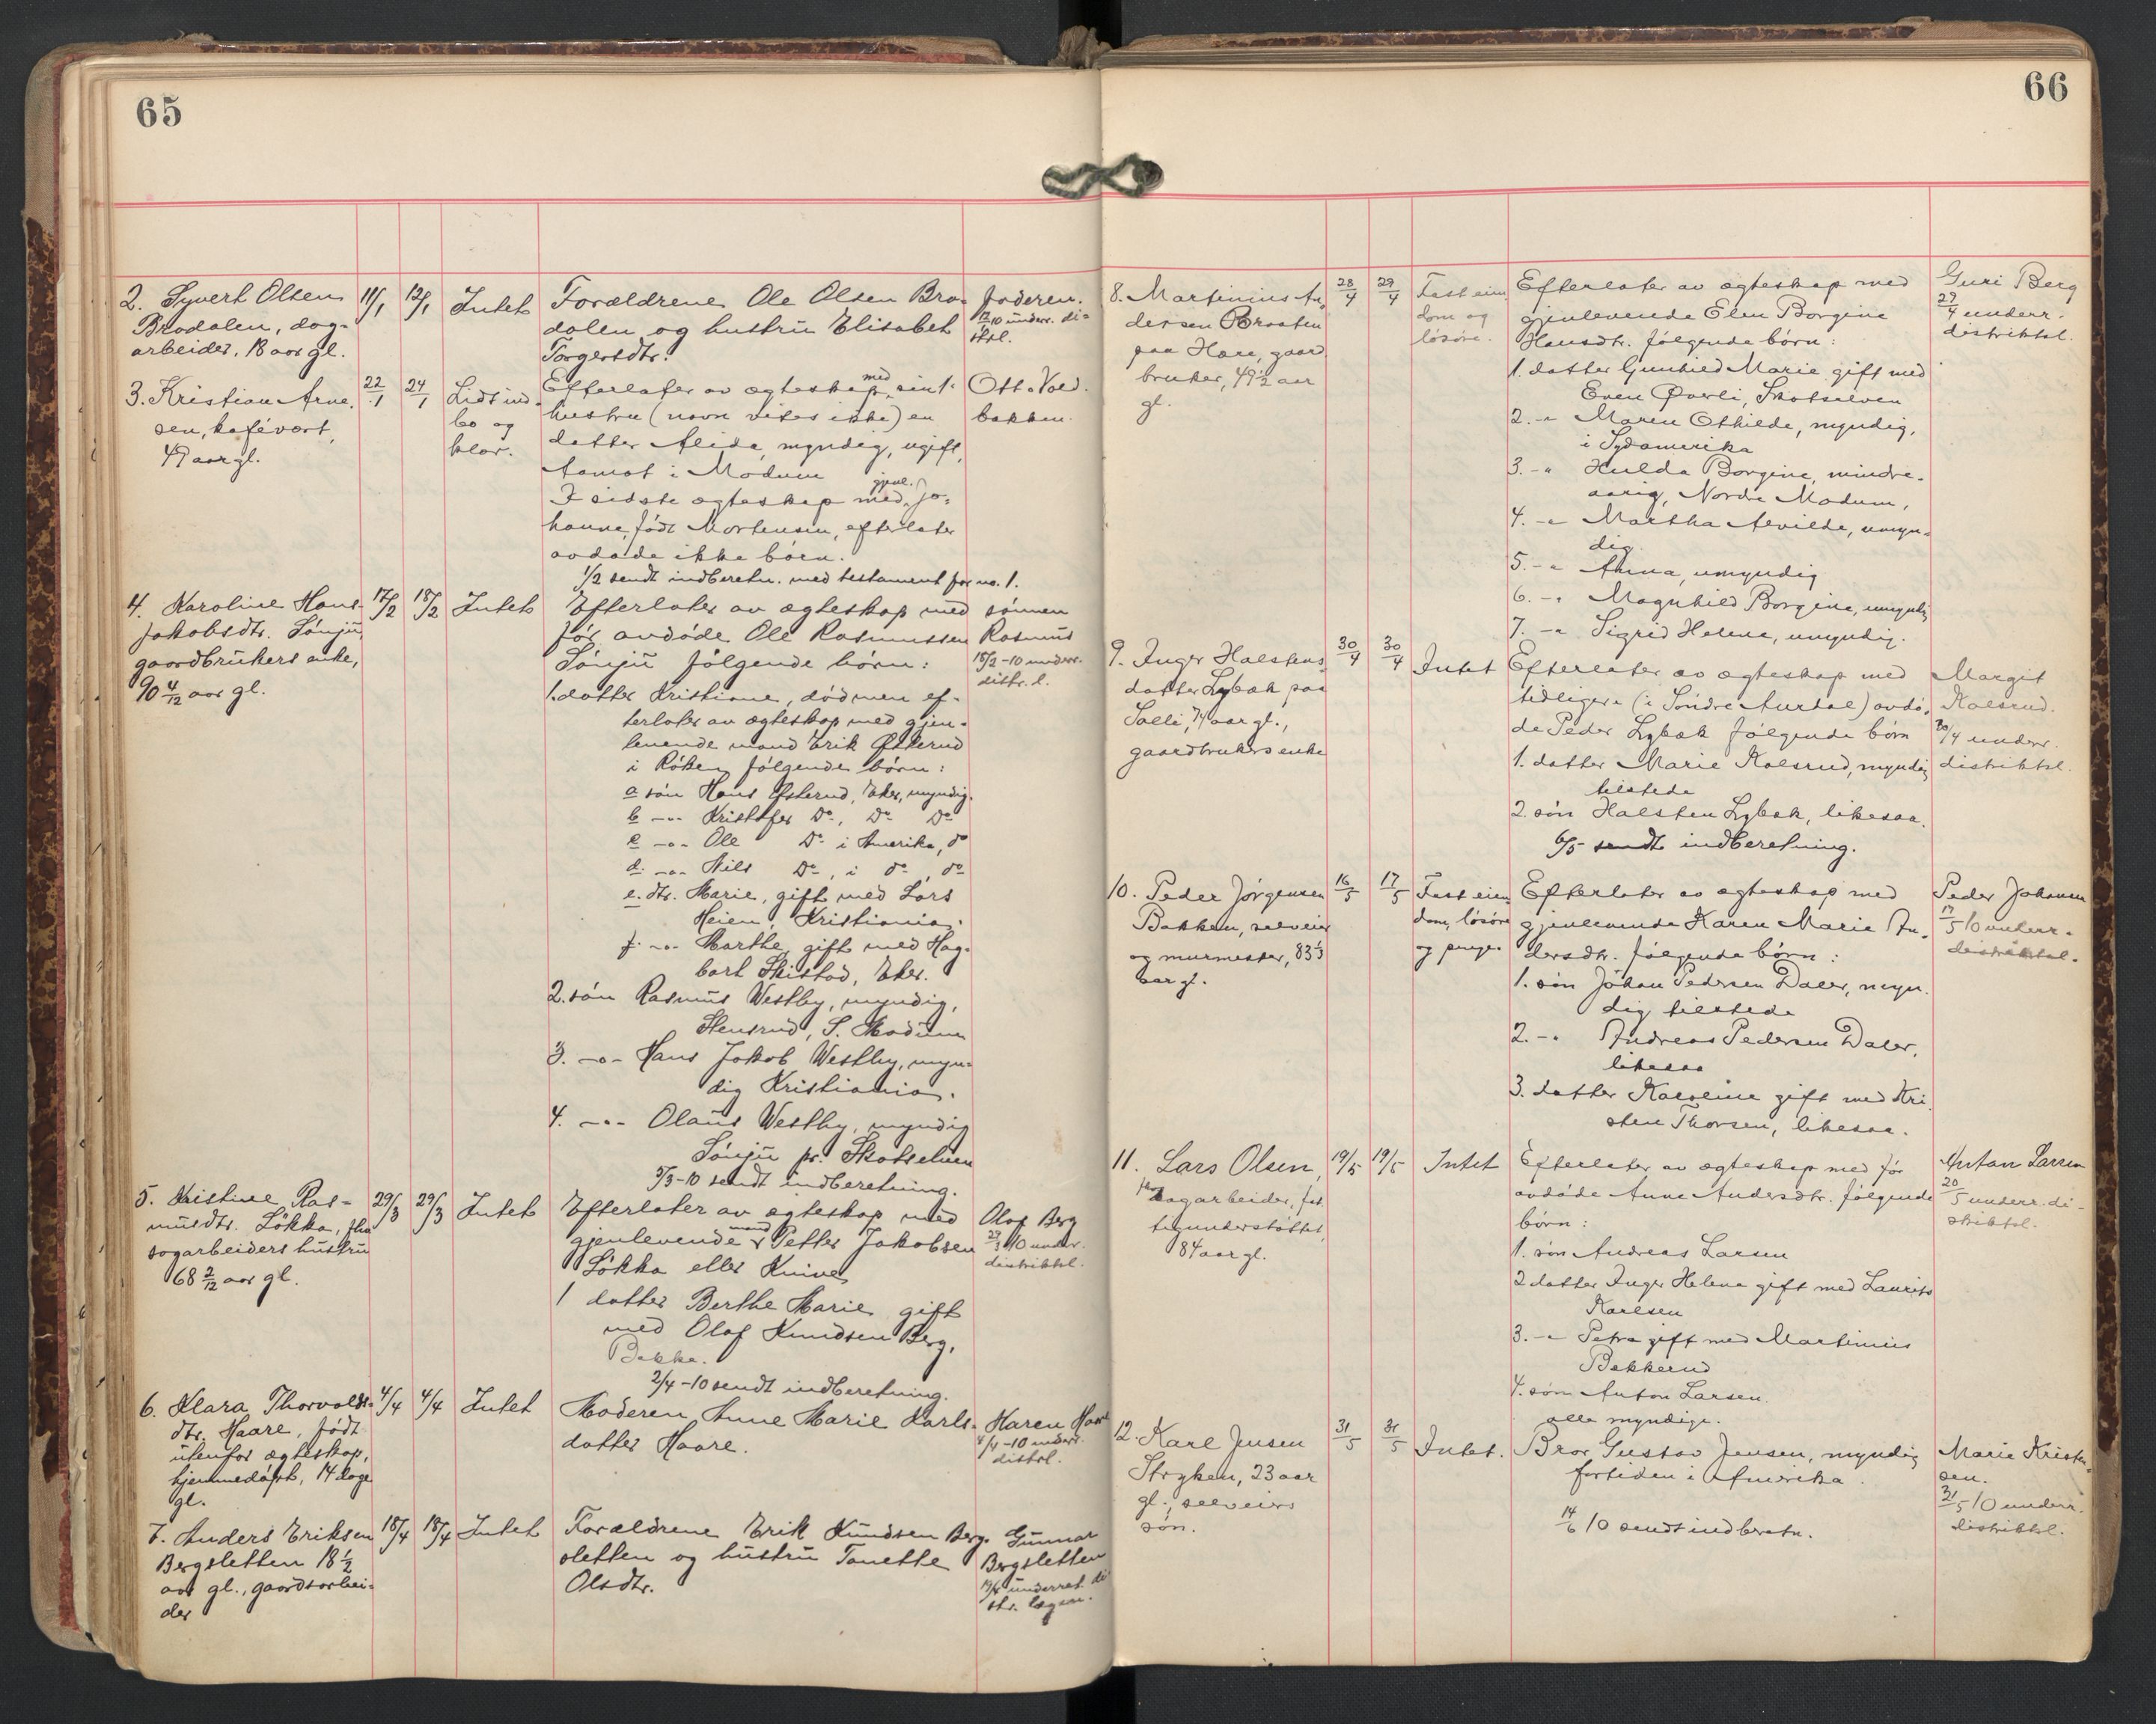 65
2. Syvert Olsen
Brodalen, dag-
arbeider, 18 aar gl.
11/1
12/1
Intet
Forældrene Ole Olsen Bro-
dalen og hustru Elisabet
Torgersdtr.
faderen.
12/1 10 underr. di-
strl.
3. Kristian Arne-
sen, kafévært,
49 aar gl.
22/1
24/1
Lidt ind-
bo og
klær.
Efterlater av ægteskap med sin 1.
hustru (navn vites ikke) en
datter Alida, myndig, ugift,
Aamot i Modum
I sidste ægteskap med gjenl. Jo-
hanne, født Mortensen, efterlater
avdøde ikke børn.
1/2 sendt indberetn. med testament for no. 1.
Otto Vold-
bakken.
4. Karoline Hans
Jakobsdtr. Sønju,
gaardbrukers enke,
90 4/12 aar gl.
17/2
18/2
Intet
Efterlater av ægteskap med
før avdøde Ole Rasmussen
Sønju følgende børn:
1. datter Kristiane, død men ef-
terlater av ægteskap med gjen-
levende mand Erik Østerud
i Røken følgende børn:
a søn Hans Østerud, Eker, myndig.
b -"- Kristofer Do, Do Do
c -"- Ole Do i Amerika, do
d. -"- Nils Do, i do, do
e. dtr. Marie, gift med Lars
Heien, Kristiania.
f. -"- Marthe, gift med Hag-
bart Skistad, Eker.
2. søn Rasmus Westby, myndig,
Stensrud, S. Modum
3. -"- Hans Jakob Westby, myn-
dig Kristiania.
4. -"- Olaus Westby, myndig
Sønju pr. Skotselven
5/3-10 sendt indberetning.
sønnen
Rasmus
18/2-10 underr.
distr. l.
5. Kristine Ras-
musdtr. Løkka, fhv
dagarbeiders hustru
68 2/12 aar gl.
29/3
29/3
Intet
Efterlater av ægteskap med
gjenlevende mand Petter Jakobsen
Løkka eller Knive
1 datter Berthe Marie gift
med Olaf Knudsen Berg,
Bakke.
2/4-10 sendt indberetning.
Olaf Berg
29/3 10 underr.
distriktsl.
6. Klara Thorvalds-
dtr. Haare, født
utenfor ægteskap,
hjemmedøpt, 14 dage
gl.
4/4
4/4
Intet
Moderen Anne Marie Karls-
datter Haare.
Karen Haare
4/4-10 underr.
distrl.
7. Anders Eriksen
Bergsletten 18 1/2
aar gl., gaardsarbei-
der
18/4
18/4
Intet
Forældrene Erik Knudsen Berg-
sletten og hustru Tonette
Olsdtr.
Gunnar
Bergsletten
19/4 underret. di
str. lægen.
66
8. Martinius An-
dersen Braaten
paa Hære, gaard
bruker, 49 1/2 aar
gl.
28/4
29/4
Fast eien
dom og
løsøre.
Efterlater av ægteskap med
gjenlevende Elen Borgine
Hansdtr. følgende børn:
1. datter Gunhild Marie gift med
Even Øverli, Skotselven
2. -"- Maren Othilde, myndig,
i Sydamerika
3. -"- Hulda Borgine, mindre-
aarig, Nordre Modum,
4. -"- Martha Alvilde, umyn-
dig
5. -"- Anna, umyndig
6. -"- Magnhild Borgine, umyndig
7. -"- Sigrid Helene, umyndig.
Guri Berg
29/4 underr.
distriktsl.
9. Inger Halstens
datter Lybæk paa
Solli, 74 aar gl.,
gaardbrukers enke
30/4
30/4
Intet
Efterlater av ægteskap med
tidligere (i Søndre Aurdal) avdø-
de Peder Lybæk følgende børn
1. datter Marie Kolsrud, myndig
tilstede
2. søn Halsten Lybæk, likesaa.
6/5 sendt indberetning.
Margit
Kolsrud.
30/4 underr.
distriktsl.
10. Peder Jørgensen
Bakken, selveier
og murmester, 83 1/3
aar gl.
16/5
17/5
Fast eien
dom, løsøre
og penge
Efterlater av ægteskap med
gjenlevende Karen Marie An-
dersdtr. følgende børn:
1. søn Johan Pedersen Daler, myn-
dig tilstede
2. -"- Andreas Pedersen Daler,
likesaa
3. datter Karoline gift med Kri
sten Thorsen, likesaa.
Peder Johansen
17/5 10 underr.
distriktsl.
11. Lars Olsen,
fhv dagarbeider, fat-
tigunderstøttet,
84 aar gl.
19/5
19/5
Intet
Efterlater av ægteskap med før
avdøde Anne Andersdtr. følgende
børn:
1. søn Andreas Larsen
2 datter Inger Helene gift med Laurits
Karlsen
3. -"- Petra gift med Martinius
Bakkerud
4. søn Anton Larsen.
alle myndige.
Anton Larsen
20/5 underr. di-
striktsl.
12. Karl Jensen
Stryken, 23 aar
gl., selveiers
søn.
31/5
31/5
Intet.
Bror Gustav Jensen, myndig
fortiden i Amerika.
14/6 10 sendt indberetn.
Marie Kristen-
sen.
31/5 10 underr.
distriktsl.